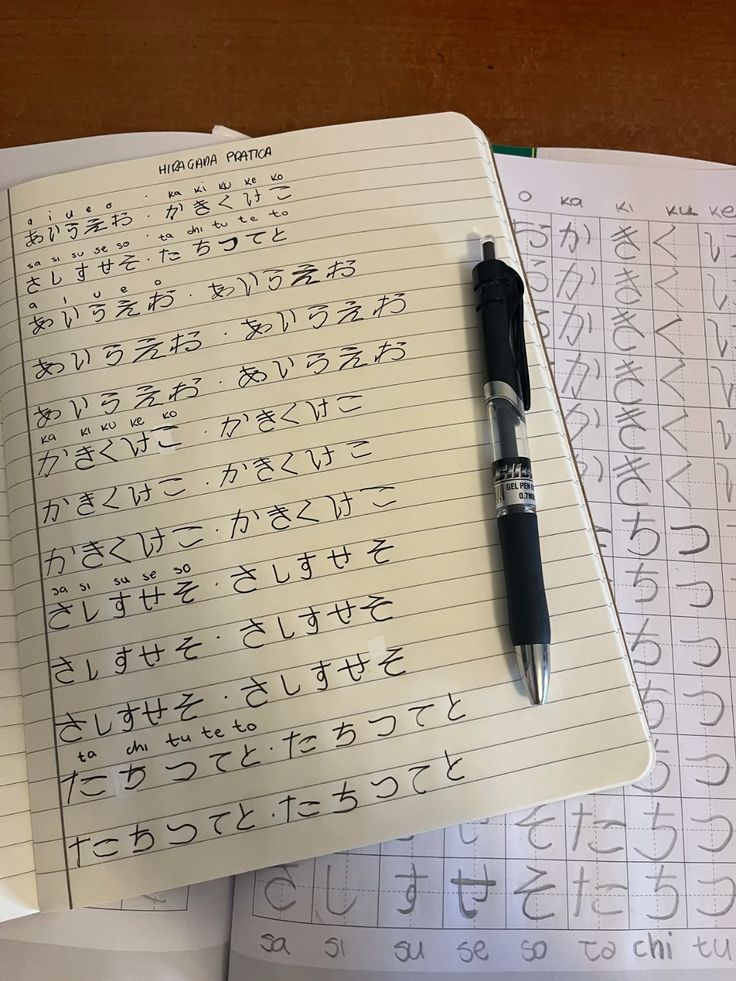 HIRAGANA PRATICA
a i u e o · ka ki ku ke ko
あいうえお · かきくけこ
sa si su se so · ta chi tu te to
さしすせそ · たちつてと
a i u e o
あいうえお · あいうえお
あいうえお · あいうえお
あいうえお · あいうえお
ka ki ku ke ko
かきくけこ · かきくけこ
かきくけこ · かきくけこ
かきくけこ · かきくけこ
sa si su se so
さしすせそ · さしすせそ
さしすせそ · さしすせそ
さしすせそ · さしすせそ
ta chi tu te to
たちつてと · たちつてと
たちつてと · たちつてと
GEL PEN
0.7
o ka ki ku ke
お か き く け
か き く け
か き く け
か き く け
か き く け
き く け
ち つ
ち つ
ち つ
ち つ
ち つ
そ た ち つ
さ し す せ そ た ち つ
sa si su se so ta chi tu